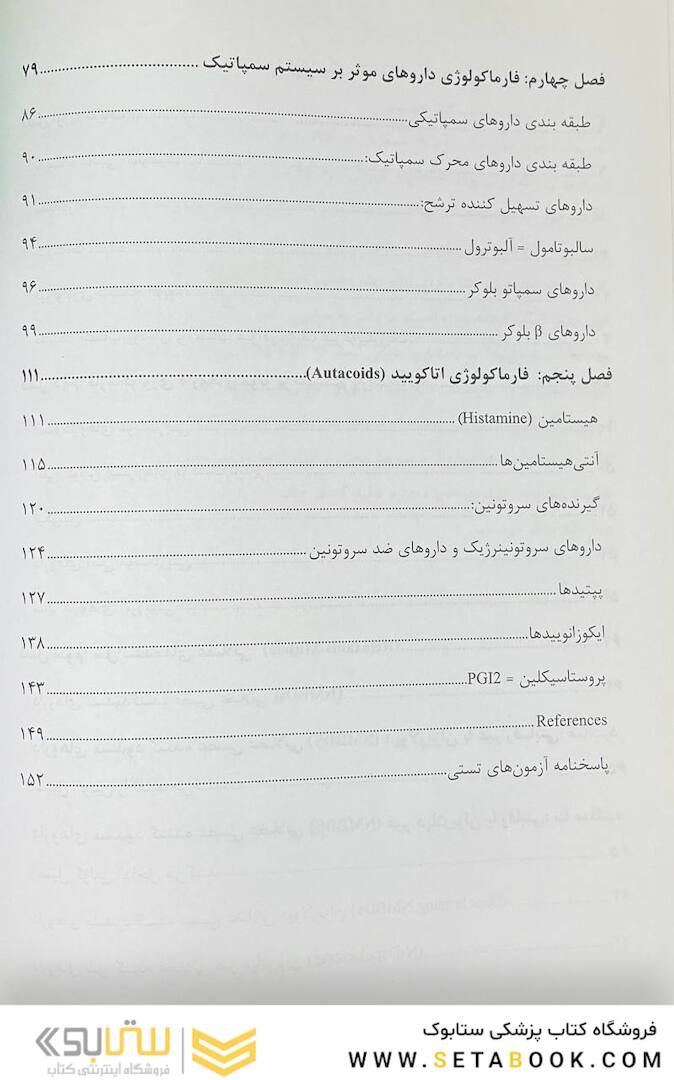 فصل چهارم: فارماکولوژی داروهای موثر بر سیستم سمپاتیک ........ ۷۹
طبقه بندی داروهای سمپاتیکی ........ ۸۶
طبقه بندی داروهای محرک سمپاتیک: ........ ۹۰
داروهای تسهیل کننده ترشح: ........ ۹۱
سالبوتامول = آلبوترول ........ ۹۴
داروهای سمپاتو بلوکر ........ ۹۶
داروهای β بلوکر ........ ۹۹
فصل پنجم: فارماکولوژی اتاکویید (Autacoids) ........ ۱۱۱
هیستامین (Histamine) ........ ۱۱۱
آنتی‌هیستامین‌ها ........ ۱۱۵
گیرنده‌های سروتونین: ........ ۱۲۰
داروهای سروتونینرژیک و داروهای ضد سروتونین ........ ۱۲۴
پپتیدها ........ ۱۲۷
ایکوزانوییدها ........ ۱۳۸
پروستاسیکلین = PGI2 ........ ۱۴۳
References ........ ۱۴۹
پاسخنامه آزمون‌های تستی ........ ۱۵۲
فروشگاه کتاب پزشکی ستابوک
WWW.SETABOOK.COM
ستابوک
فروشگاه اینترنتی کتاب